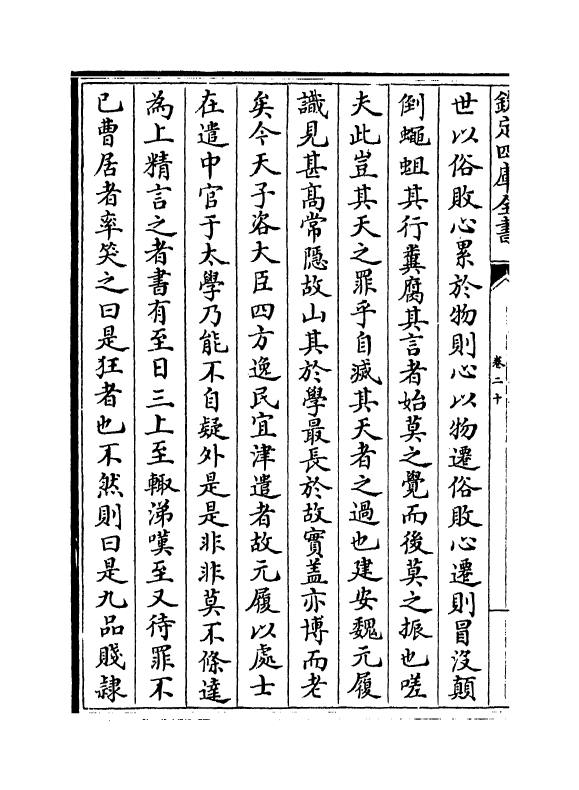 欽定四庫全書
卷二十
世以俗敗心累於物則心以物遷俗敗心遷則冒沒顛
倒蠅蛆其行糞腐其言者始莫之覺而後莫之振也嗟
夫此豈其天之罪乎自滅其天者之過也建安魏元履
識見甚髙常隱故山其於學最長於故實盖亦博而老
矣今天子咨大臣四方逸民宜津遣者故元履以處士
在遣中官于太學乃能不自疑外是是非非莫不條達
為上精言之者書有至日三上至輙涕嘆至又待罪不
已曹居者率笑之曰是狂者也不然則曰是九品賤隷